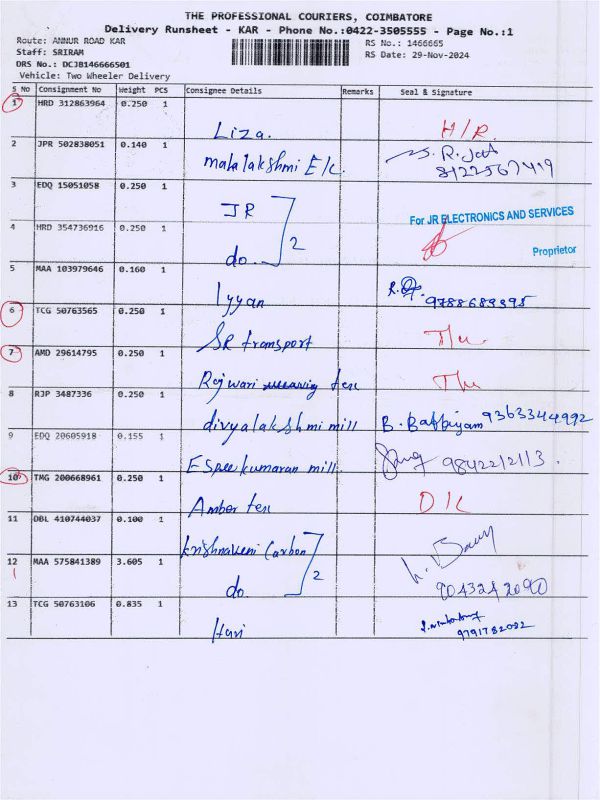 THE PROFESSIONAL COURIERS, COIMBATORE
Delivery Runsheet - KAR - Phone No.:0422-3505555 - Page No.:1
Route: ANNUR ROAD KAR RS No.: 1466665
Staff: SRIRAM RS Date: 29-Nov-2024
DRS No.: DCJB146666501
Vehicle: Two Wheeler Delivery
S No Consignment No Weight PCS Consignee Details Remarks Seal & Signature
1 HRD 312863964 0.250 1
Liza. H/R.
2 JPR 502838051 0.140 1
mahalakshmi E/c. 8122567419
3 EDQ 15051058 0.250 1
JR
For JR ELECTRONICS AND SERVICES
4 HRD 354736916 0.250 1
2
do.
Proprietor
5 MAA 103979646 0.160 1
Iyyan 9788689395
6 TCG 50763565 0.250 1
SR transport
7 AMD 29614795 0.250 1
Rajwari tex
8 RJP 3487336 0.250 1
divyalakshmi mill 9363344992
9 EDQ 20605918 0.155 1
Espee kumaran mill. 9842212113.
10 TMG 200668961 0.250 1
Amber tex D/L
11 DBL 410744037 0.100 1
krishnaveni Carbon
12 MAA 575841389 3.605 1
2
do. 9043242090
13 TCG 50763106 0.835 1
Hari 9791782082